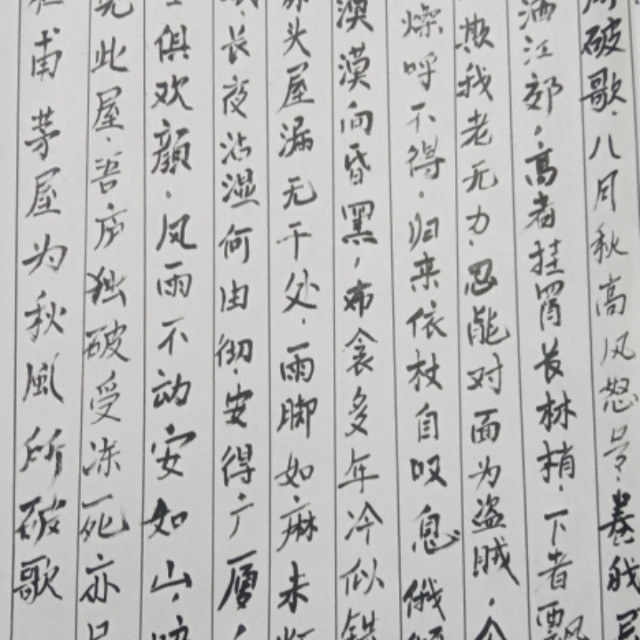 破歌。八月秋高风怒号，卷我屋
满江郊，高者挂罥长林梢，下者飘
欺我老无力，忍能对面为盗贼，公
燥呼不得，归来依杖自叹息，俄
漠漠向昏黑，布衾多年冷似铁
头屋漏无干处，雨脚如麻未断
长夜沾湿何由彻，安得广厦
俱欢颜，风雨不动安如山，呜
此屋，吾庐独破受冻死亦
甫 茅屋为秋風所破歌